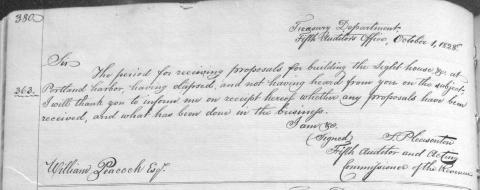 380.
Treasury Department
Fifth Auditors Office, October 1, 1828.
Sir
The period for receiving proposals for building the Light house &c at
363. Portland harbor, having elapsed, and not having heard from you on the subject,
I will thank you to inform me on receipt hereof whether any proposals have been
received, and what has been done in the business.
I am &c.
(Signed) S Pleasonton
Fifth Auditor and Acting
William Peacock Esqr. Commissioner of the Revenue